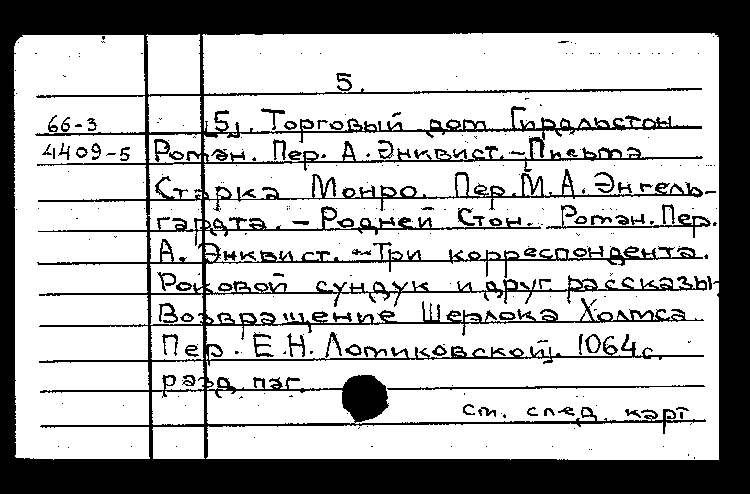 5.
66-3 [5]. Торговый дом Гирдльстон
4409-5 Роман. Пер. А. Энквист. – Письма
Старка Монро. Пер. М. А. Энгель-
гардта. – Родней Стон. Роман. Пер.
А. Энквист. – Три корреспондента.
Роковой сундук и друг. рассказы
Возвращение Шерлока Холмса
Пер. Е. Н. Ломиковской. 1064 с.
разд. паг.
см. след. карт.